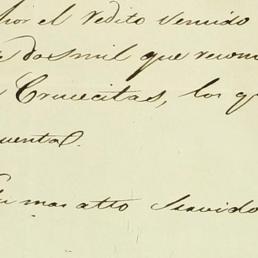 por el redito vencido
dos mil que recono
Crucecitas, los q
cuenta.
Su mas atto Servido